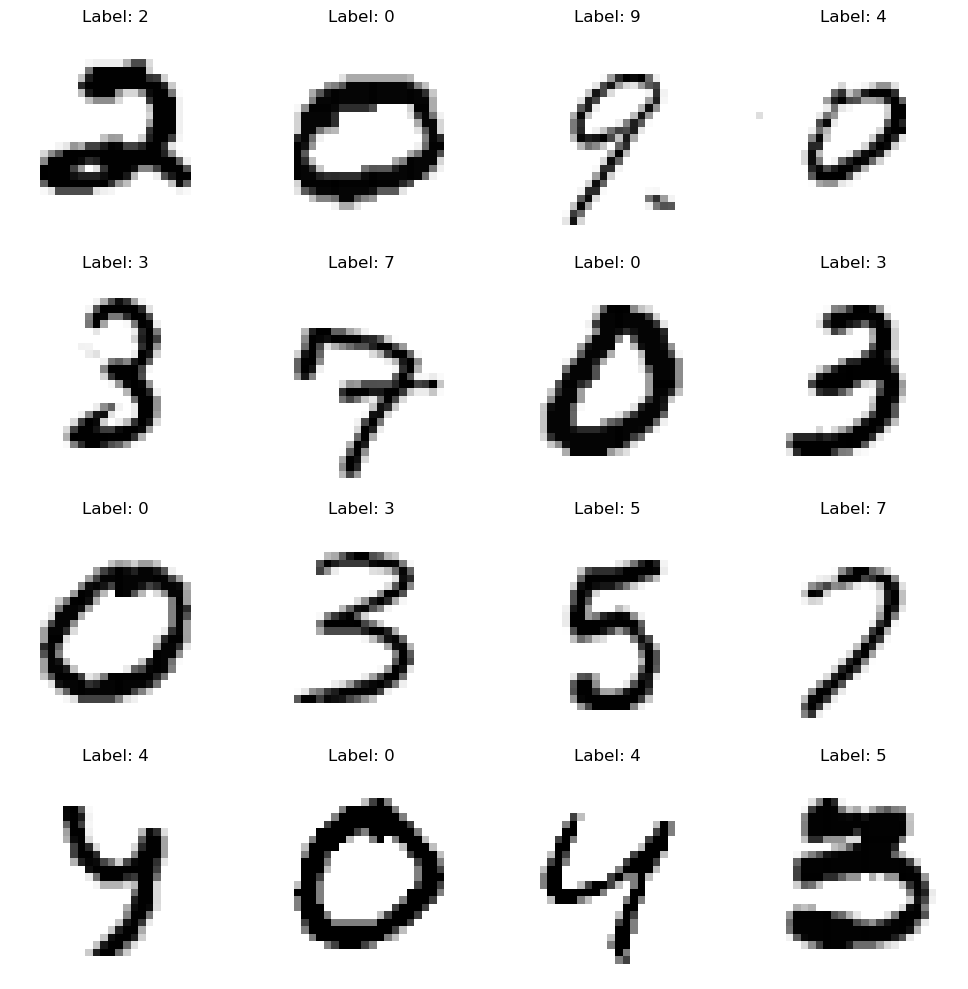 Label: 2 Label: 0 Label: 9 Label: 4
2 0 9 0
Label: 3 Label: 7 Label: 0 Label: 3
3 7 0 3
Label: 0 Label: 3 Label: 5 Label: 7
0 3 5 7
Label: 4 Label: 0 Label: 4 Label: 5
4 0 4 3